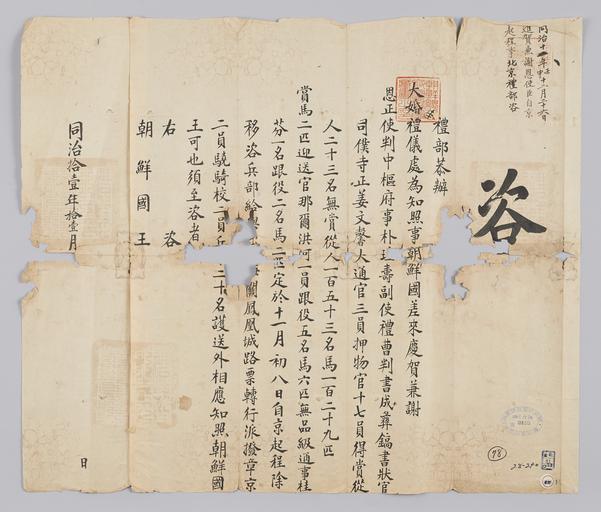 同治十一年壬申十二月二十六日
進賀兼謝恩使臣自京
起程事北京禮部咨
咨
禮部恭辦
大婚禮儀處為知照事朝鮮國差來慶賀兼謝
恩正使判中樞府事朴珪壽副使禮曹判書成彝鎬書狀官
司僕寺正姜文馨大通官三員押物官十七員得賞從
人二十三名無賞從人一百五十三名馬一百二十九匹
賞馬二匹迎送官那爾洪阿一員跟役五名馬六匹無品級通事桂
芬一名跟役二名馬二匹定於十一月初八日自京起程除
移咨兵部給與 關鳳凰城路票轉行派撥章京
二員驍騎校二員兵 二十名護送外相應知照朝鮮國
王可也須至咨者
右咨
朝鮮國王
同治拾壹年拾壹月 日
(98)